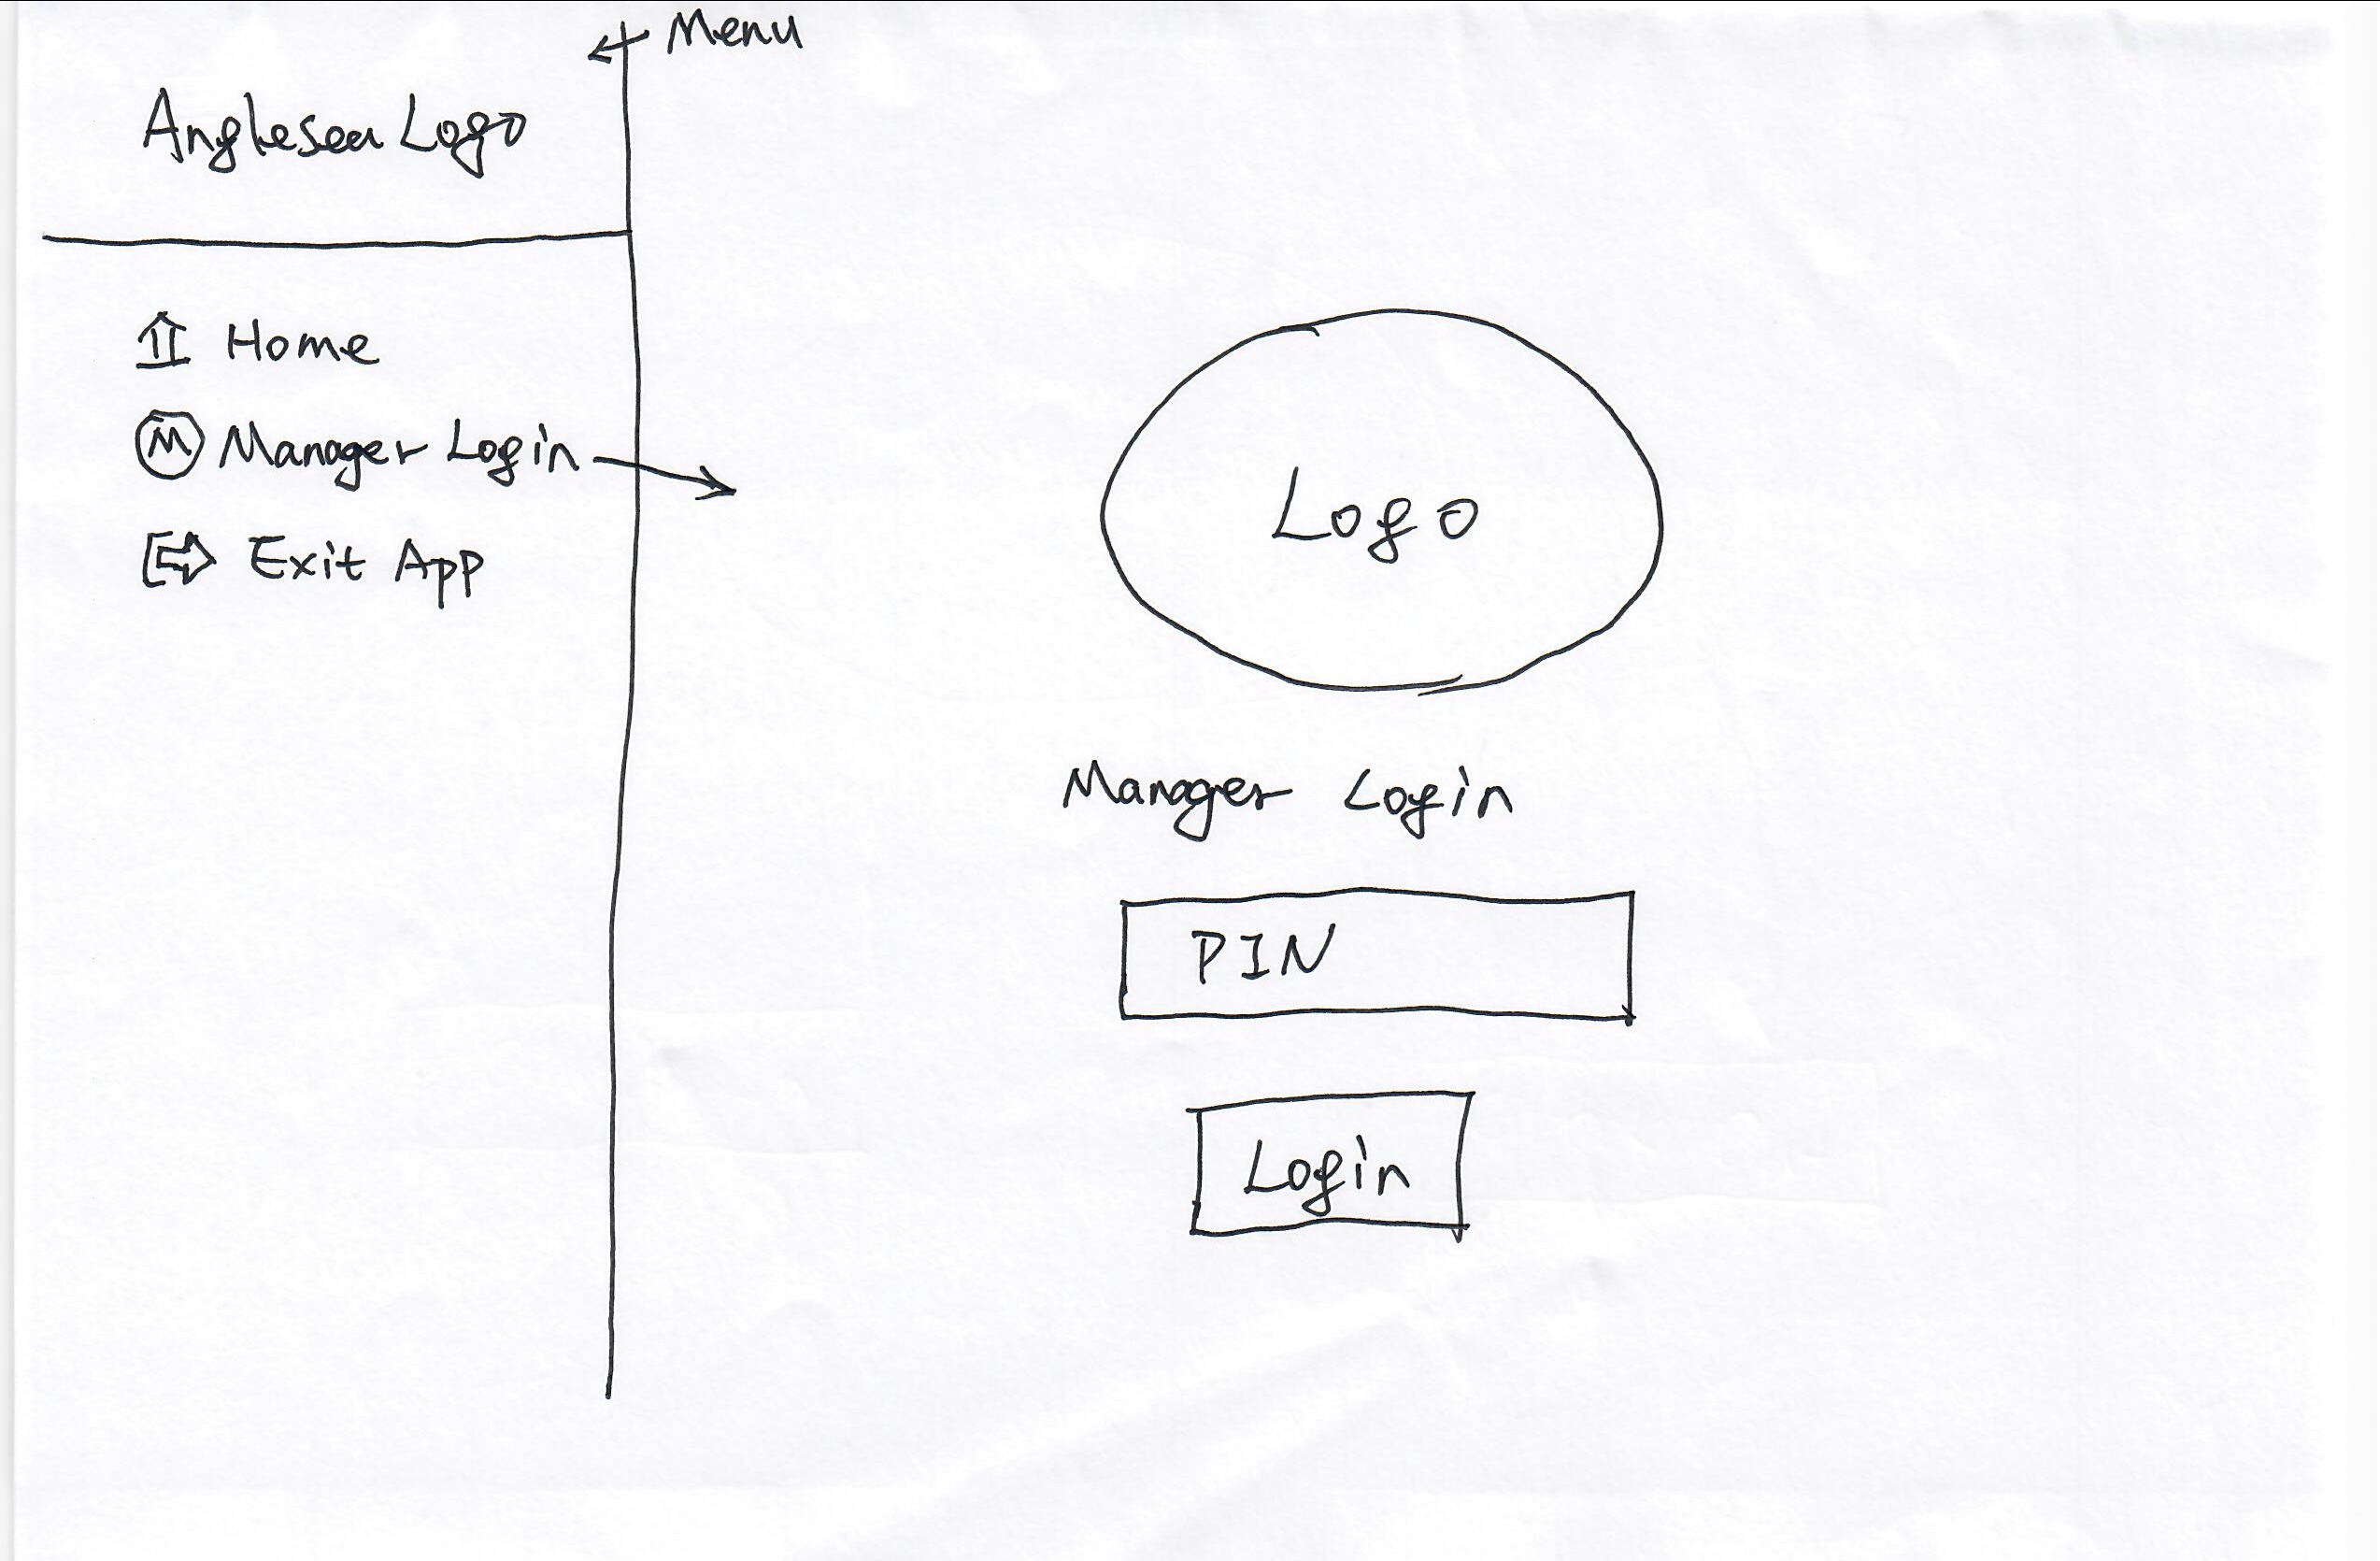 Menu
Anglesea Logo
Home
M Manager Login
Exit App
Logo
Manager Login
PIN
Login